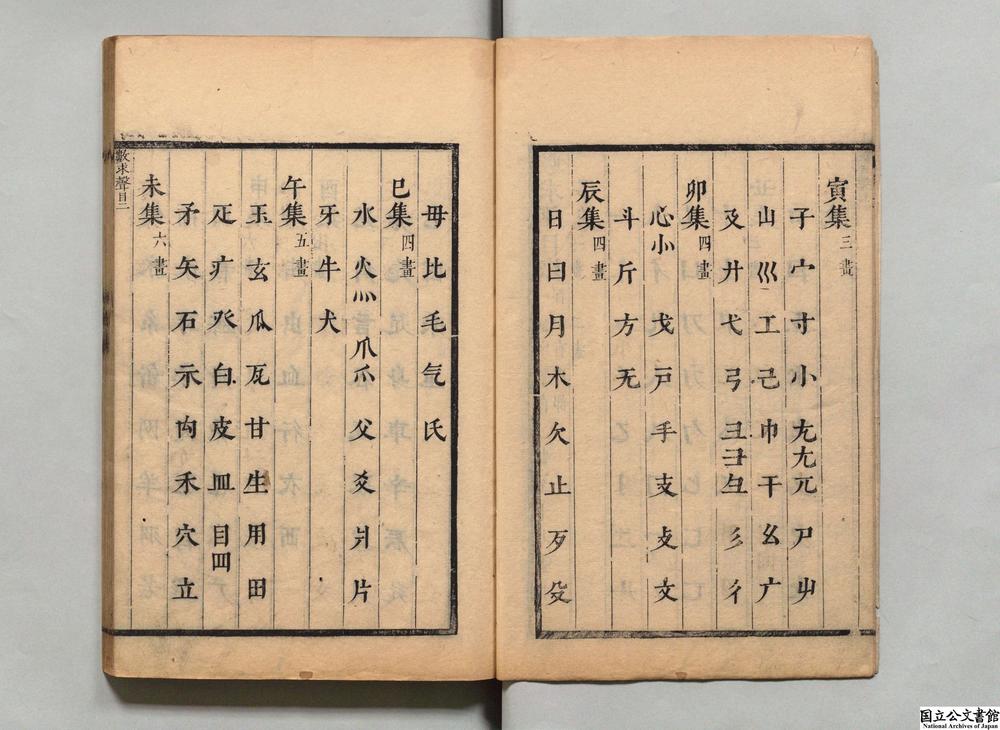 寅集 三畫
子 宀 寸 小 尢 尣 兀 尸 屮
山 巛 工 己 巾 干 幺 广
廴 廾 弋 弓 彐 彑 彡 彳
卯集 四畫
心 㣺 戈 戶 手 支 攴 文
斗 斤 方 无
辰集 四畫
日 曰 月 木 欠 止 歹 殳
毋 比 毛 气 氏
巳集 四畫
水 火 灬 爪 爫 父 爻 爿 片
牙 牛 犬
午集 五畫
玉 玄 瓜 瓦 甘 生 用 田
疋 疒 癶 白 皮 皿 目 罒
矛 矢 石 示 禸 禾 穴 立
未集 六畫
數求聲目二
国立公文書館
National Archives of Japan